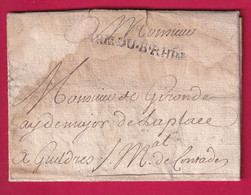 A Monsieur
ARM.DU.B.RHIN
Monsieur de Gironde
aydemajor de la place
a Gueldres / Mal. de Contades